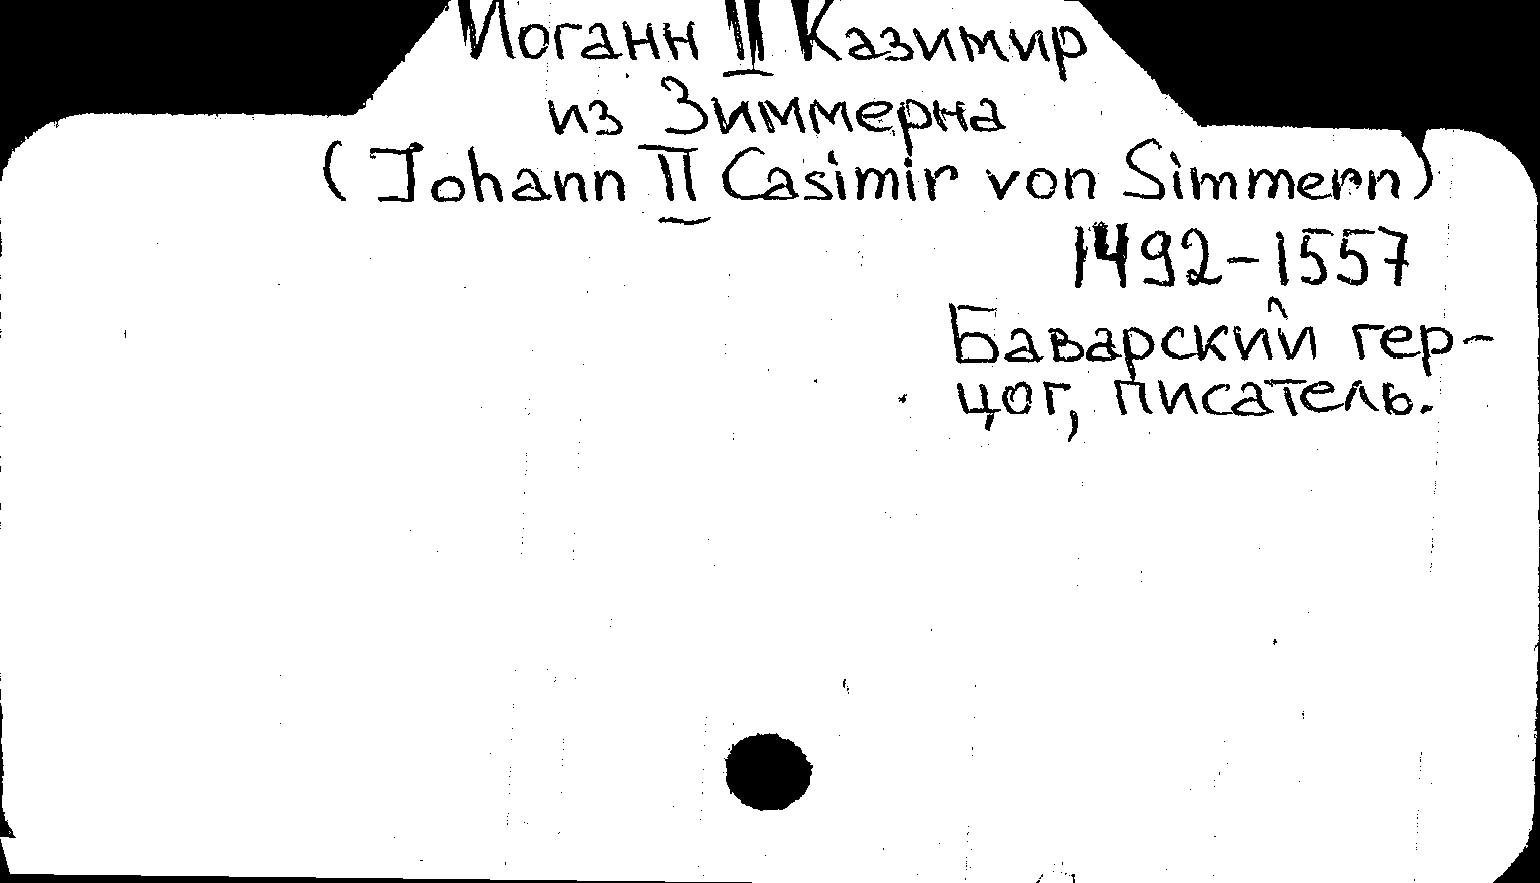 Иоганн II Казимир
из Зиммерна
(Johann II Casimir von Simmern)
1492-1557
Баварский гер-
цог, писатель.